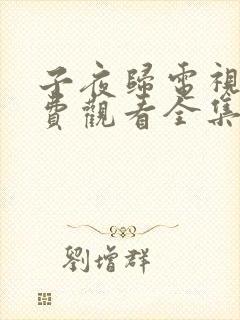 子夜歸電視
費觀看全集
劉增群